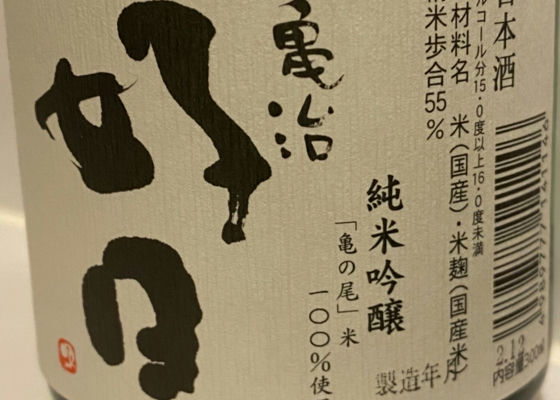 日本酒
アルコール分15.0度以上16.0度未満
原材料名 米(国産)・米麹(国産米)
精米歩合55%
純米吟醸
「亀の尾」米
一〇〇%使
亀治
好日
製造年月
2.12
内容量300ml